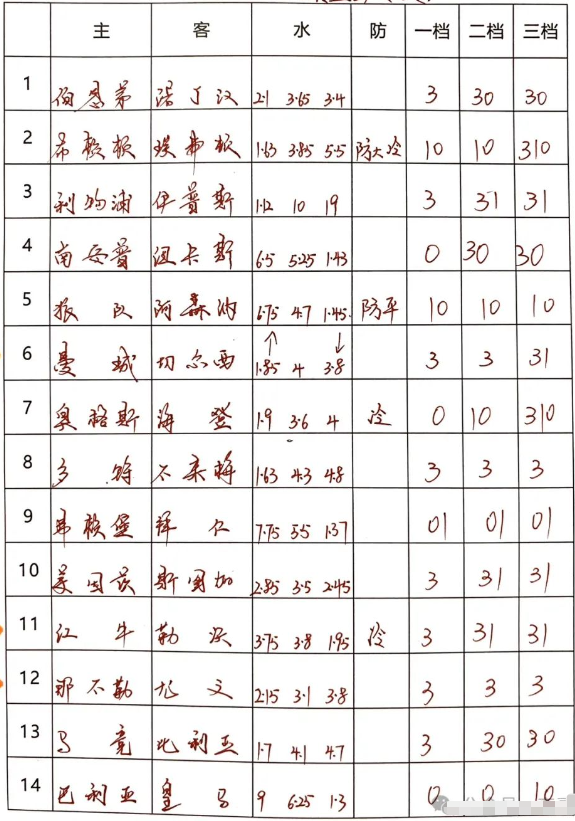 主 客 水 防 一档 二档 三档
1 伯恩茅 诺丁汉 2.1 3.65 3.4 3 30 30
2 布赖顿 埃弗顿 1.63 3.85 5.5 防大冷 10 10 310
3 利物浦 伊普斯 1.12 10 19 3 31 31
4 南安普 纽卡斯 6.5 5.25 1.43 0 30 30
5 狼队 阿森纳 6.75 4.7 1.45 防平 10 10 10
6 曼城 切尔西 ↑ ↓ 1.85 4 3.8 3 3 31
7 奥格斯 海登 1.9 3.6 4 冷 0 10 310
8 多特 不来梅 1.63 4.3 4.8 3 3 3
9 弗赖堡 拜仁 7.75 5.5 1.37 01 01 01
10 美因茨 斯图加 2.85 3.5 2.45 3 31 31
11 红牛 勒沃 3.75 3.8 1.95 冷 3 31 31
12 那不勒 尤文 2.15 3.1 3.8 3 3 3
13 马竞 比利亚 1.7 4.1 4.7 3 30 30
14 巴利亚 皇马 9 6.25 1.3 0 0 10